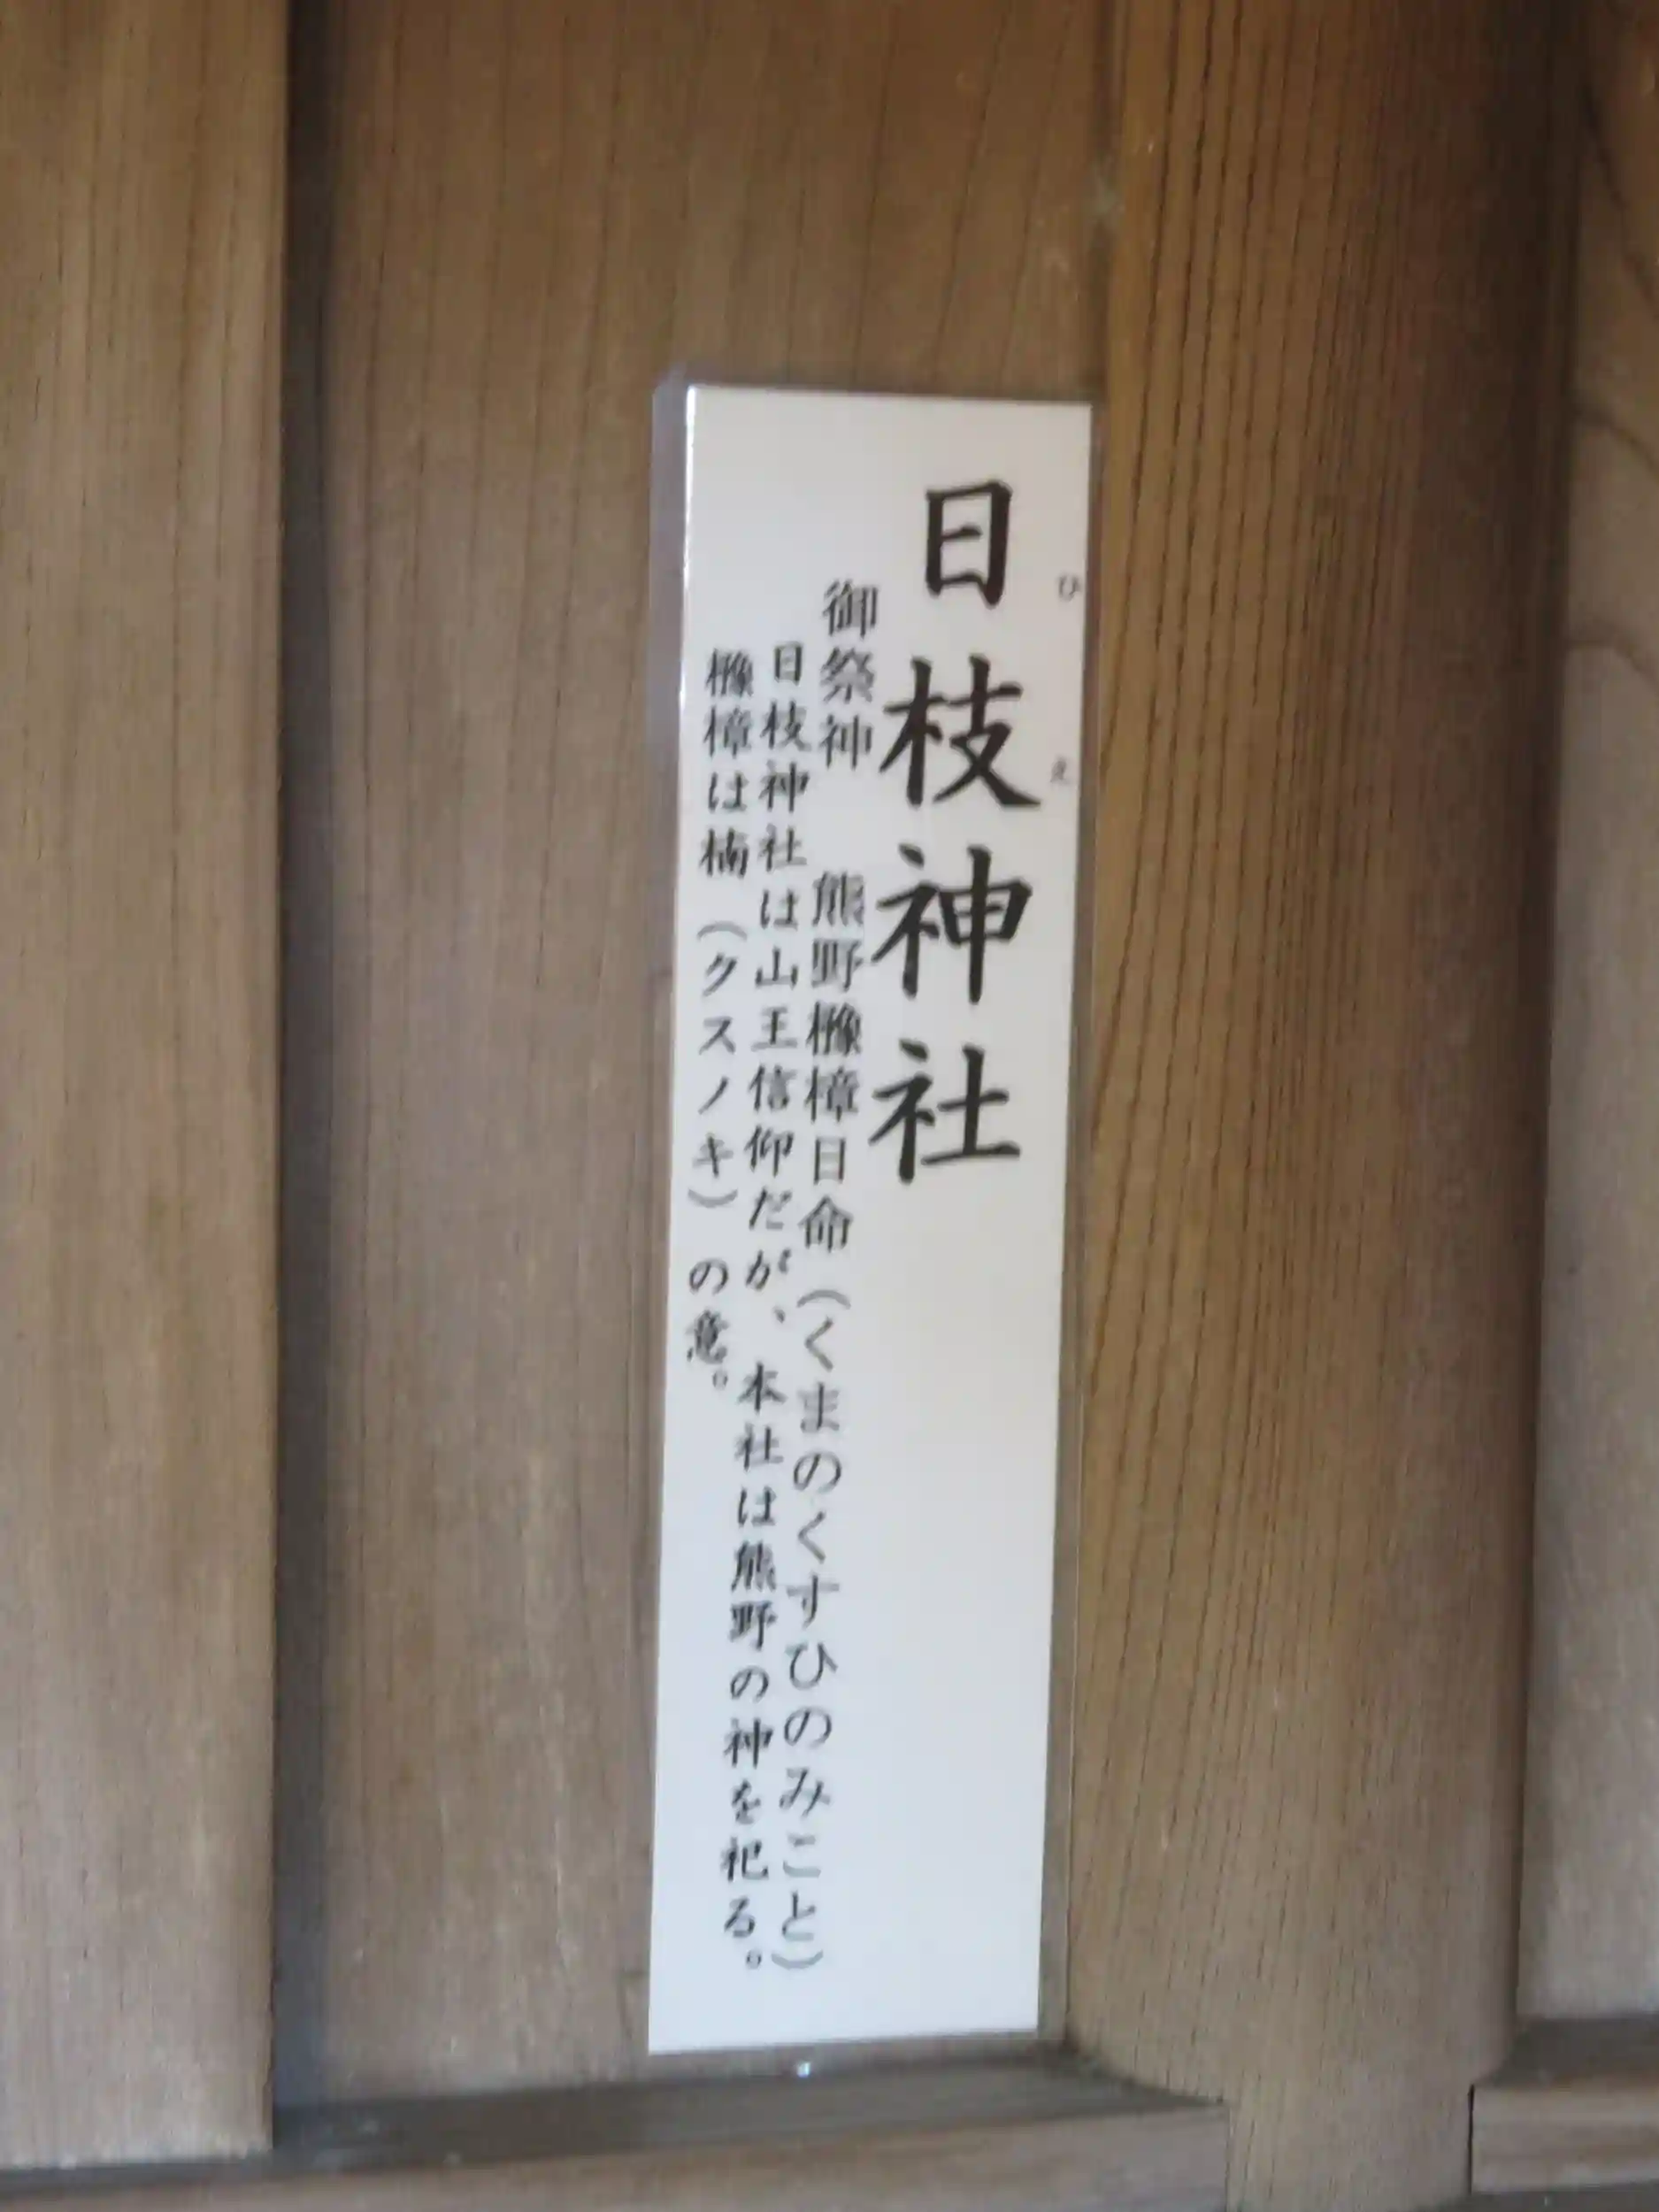 日枝神社
ひえ
御祭神 熊野沲樟日命（くまのくすひのみこと）
日枝神社は山王信仰だが、本社は熊野の神を祀る。
櫲樟は楠（クスノキ）の意。